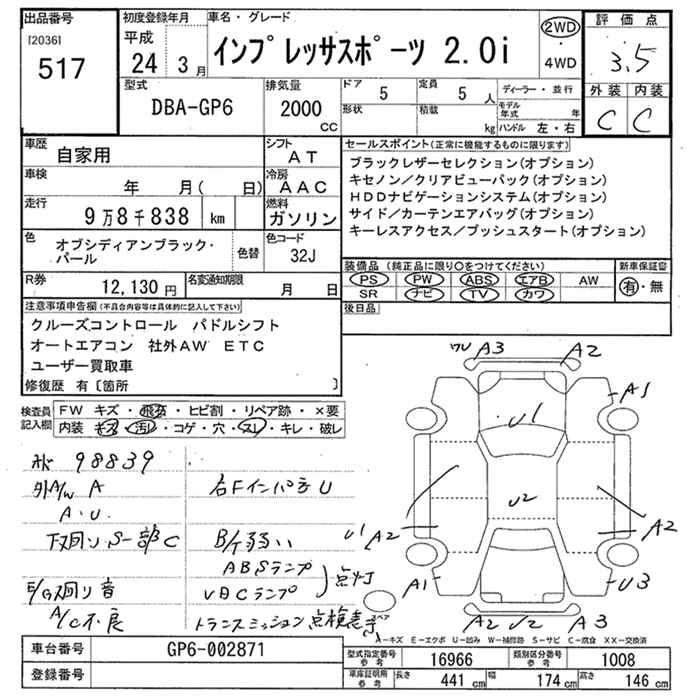 出品番号
[2036]
517
初度登録年月
平成
24 3月
車名・グレード
インプレッサスポーツ 2.0i
2WD
・
4WD
評価点
3.5
外装 内装
C C
型式
DBA-GP6
排気量
2000
CC
ドア
5
定員
5 人
形状
積載
kg
ディーラー・並行
モデル年式 年
ハンドル 左・右
車歴
自家用
シフト
AT
車検
年 月( 日)
冷房
AAC
走行
9万8千838 km
燃料
ガソリン
色
オブシディアンブラック・
パール
色替
色コード
32J
R券
12,130円
名変通知期限
月 日
セールスポイント(正常に機能するものに限ります)
ブラックレザーセレクション(オプション)
キセノン/クリアビューパック(オプション)
HDDナビゲーションシステム(オプション)
サイド/カーテンエアバッグ(オプション)
キーレスアクセス/プッシュスタート(オプション)
装備品 (純正品に限り○をつけてください)
PS PW ABS エアB AW
SR ナビ TV カワ
新車保証書
有・無
後日品
注意事項申告欄(不具合内容等は具体的に記入して下さい)
クルーズコントロール パドルシフト
オートエアコン 社外AW ETC
ユーザー買取車
修復歴 有〔箇所 〕
検査員
記入欄
FW キズ・飛石・ヒビ割・リペア跡・×要
内装 キズ・汚れ・コゲ・穴・スレ・キレ・破レ
98839
外A/W A
A・U
下廻りS一部C
E/G廻り音
A/C不良
右FインパネU
B/T弱い
ABSランプ
VDCランプ
点灯
トランスミッション点検表示
ワレ A3 A2
A1
U1
U2
U1 A2
A2
A1
U3
スペア
A2 U2 A3
A-キズ E-エクボ U-凹み W-補修跡 S-サビ C-腐食 XX-交換済
車台番号
GP6-002871
登録番号
型式指定番号
参考
16966
類別区分番号
参考
1008
車庫証明用
参考
長さ 441 cm 幅 174 cm 高さ 146 cm